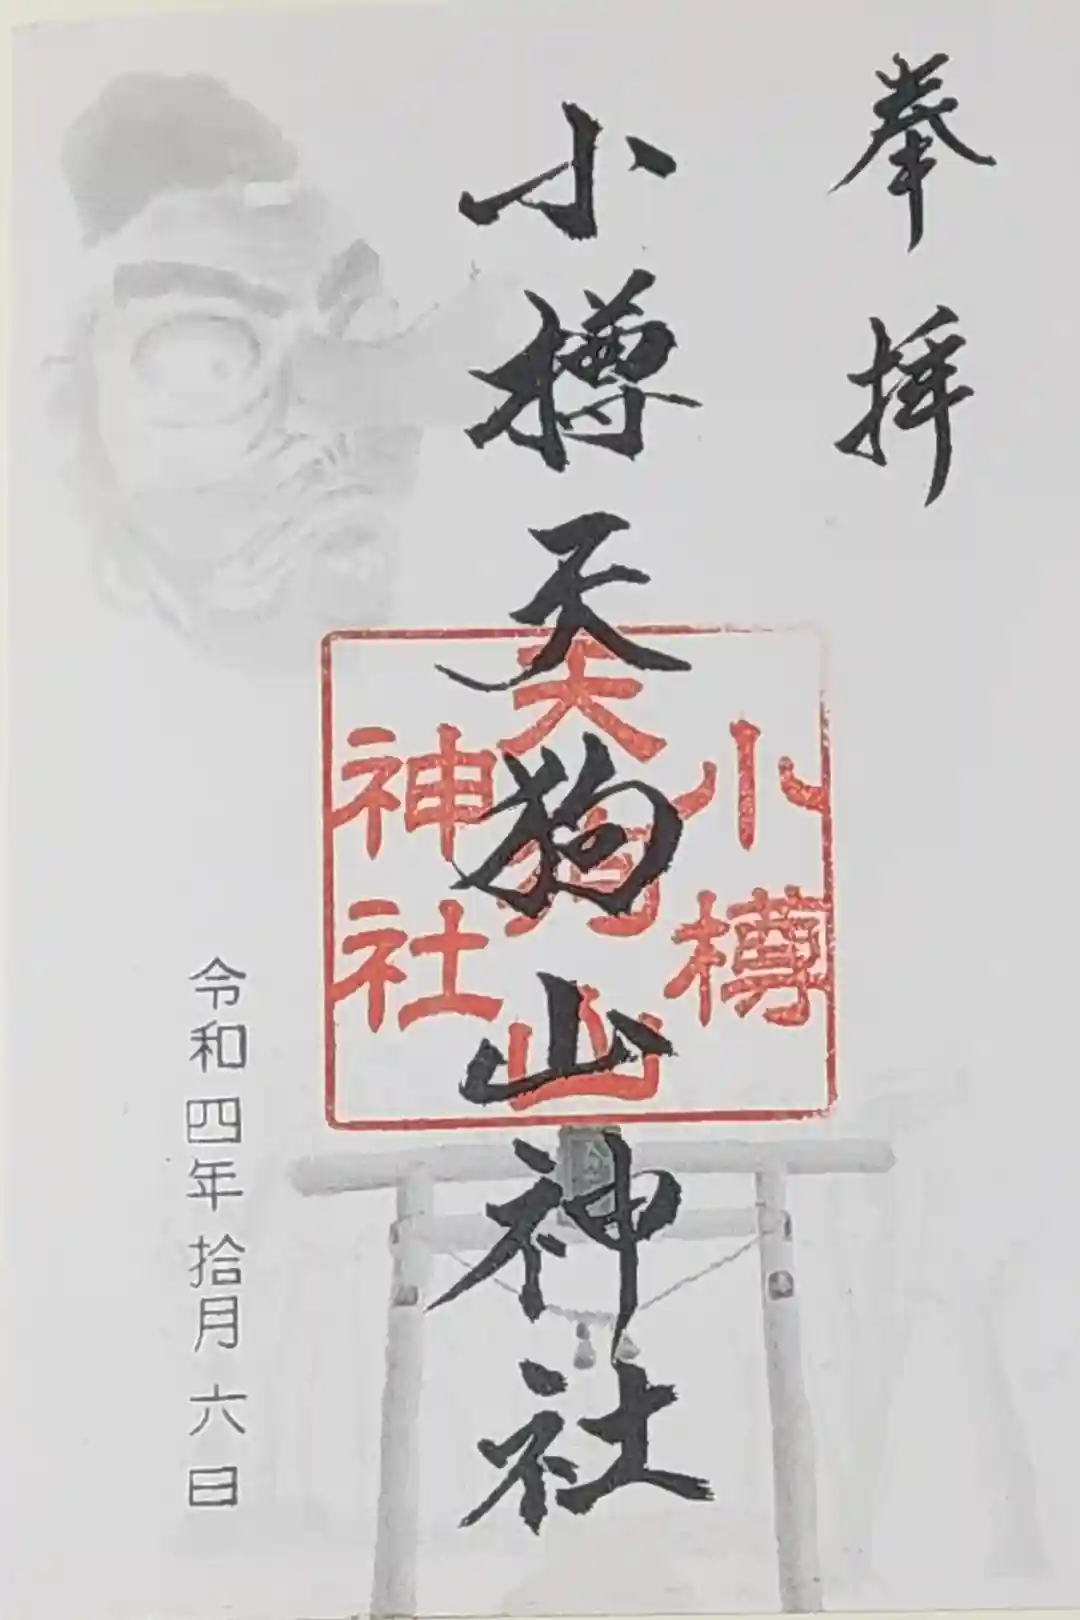 奉拝
小樽天狗山神社
小樽
天狗山
神社
令和四年拾月六日